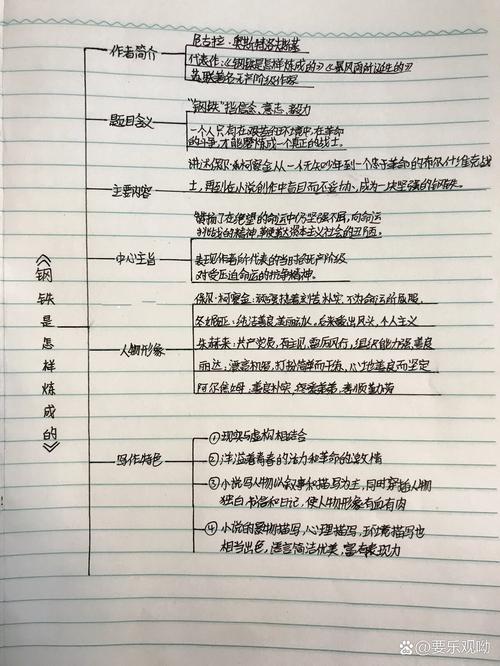 《钢铁是怎样炼成的》
作者简介
尼古拉·奥斯特洛夫斯基
代表作:《钢铁是怎样炼成的》《暴风雨所诞生的》
苏联著名无产阶级作家
题目含义
"钢铁"指信念、意志、毅力
一个人只有在艰苦的环境中,在革命
的斗争,才能磨炼成一个真正的战士。
主要内容
讲述保尔·柯察金从一个无知少年到一个忠于革命的布尔什维克战
士,再到在小说创作中盲目而不妥协,成为一块坚强的钢铁。
中心主旨
赞扬了在绝望的命运中仍坚强不屈,向命运
挑战的精神,革资本主义社会的丑陋。
表现作者所代表的当时的无产阶级
对受压迫命运的抗争精神。
人物形象
保尔·柯察金:顽强执着刻苦朴实,不为命运所屈服。
冬妮娅:纯洁善良美丽动人,后来爱出风头,个人主义
朱赫来:共产党员,有主见,雷厉风行,组织能力强,善良
丽达:漂亮机智,打扮简单而干练,心地善良而坚定
阿尔焦姆:善良朴实,疼爱弟弟,孝顺勤劳
写作特色
①现实与虚构相结合
②洋溢着青春的活力和革命的激情
③小说写人物以叙事和描写为主,同时穿插人物
独白书信和日记,使人物形象有血有肉
④小说的景物描写,心理描写,环境描写也
相当出色,语言简洁优美,富有表现力
@要乐观呦